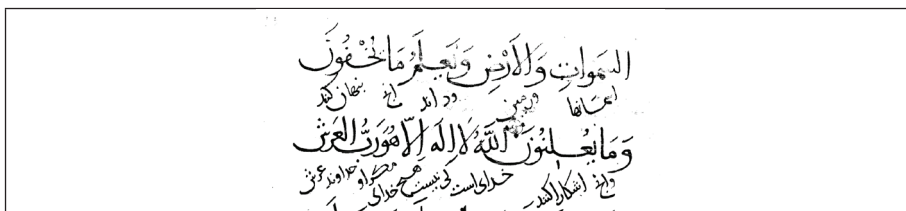 السموات وَالْأَرْضِ وَيَعْلَمُ مَا يُخْفُونَ
اسمانها وزمین وداند انچ پنهان کنند
وَمَا يُعْلِنُونَ اللَّهُ لَا إِلَهَ إِلَّا هُوَ رَبُّ الْعَرْشِ
وانچ اشکارا کنند خدای است کی نیست هیچ خدای مگر او خداوند عرش